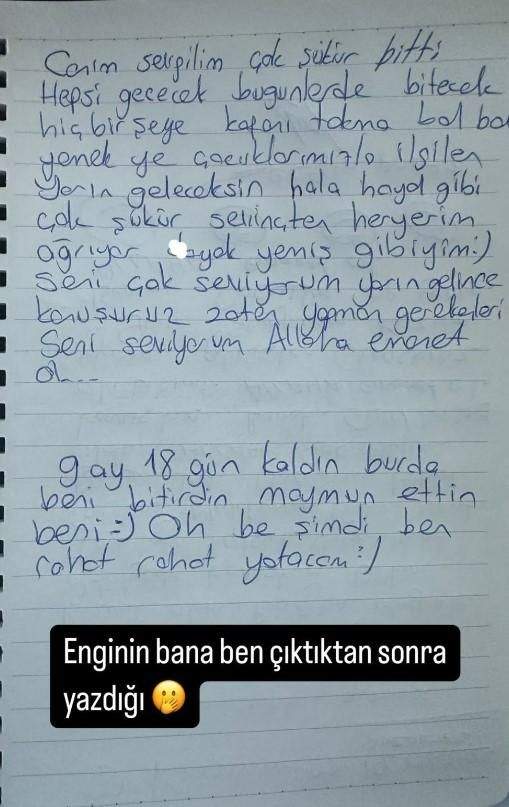 Canım sevgilim çok şükür bitti
Hepsi geçecek bugünlerde bitecek
hiçbir şeye kafanı takma bol bol
yemek ye çocuklarımızla ilgilen
Yarın geleceksin hala hayal gibi
çok şükür sevinçten heryerim
ağrıyor dayak yemiş gibiyim:)
Seni çok seviyorum yarın gelince
konuşuruz zaten yapman gerekenleri
Seni seviyorum Allaha emanet
ol...
9 ay 18 gün kaldın burda
beni bitirdin maymun ettin
beni=) Oh be şimdi ben
rahat rahat yatacam:)
Enginin bana ben çıktıktan sonra
yazdığı 🤭